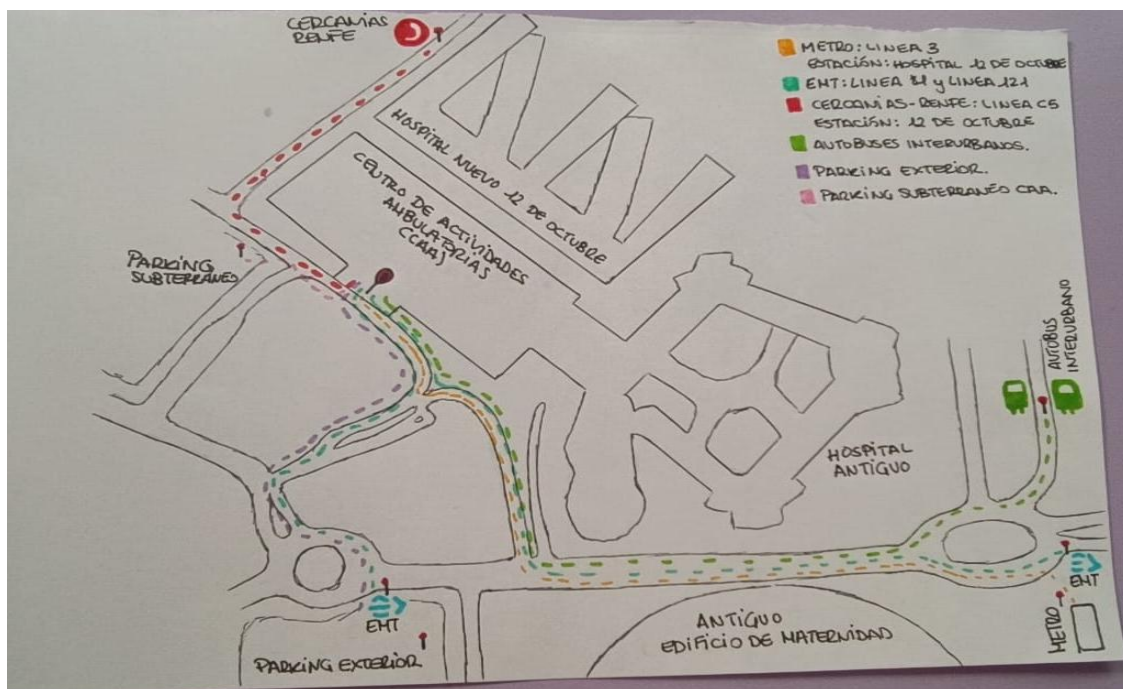 CERCANIAS
RENFE
METRO: LINEA 3
ESTACIÓN: HOSPITAL 12 DE OCTUBRE
EMT: LINEA 81 y LINEA 121
CERCANIAS-RENFE: LINEA C5
ESTACIÓN: 12 DE OCTUBRE
AUTOBUSES INTERURBANOS.
PARKING EXTERIOR.
PARKING SUBTERRANÉO CAA.
HOSPITAL NUEVO 12 DE OCTUBRE
CENTRO DE ACTIVIDADES
AMBULATORIAS
(CAA)
PARKING
SUBTERRANÉO
AUTOBUS
INTERURBANO
HOSPITAL
ANTIGUO
EMT
METRO
EMT
ANTIGUO
EDIFICIO DE MATERNIDAD
PARKING EXTERIOR